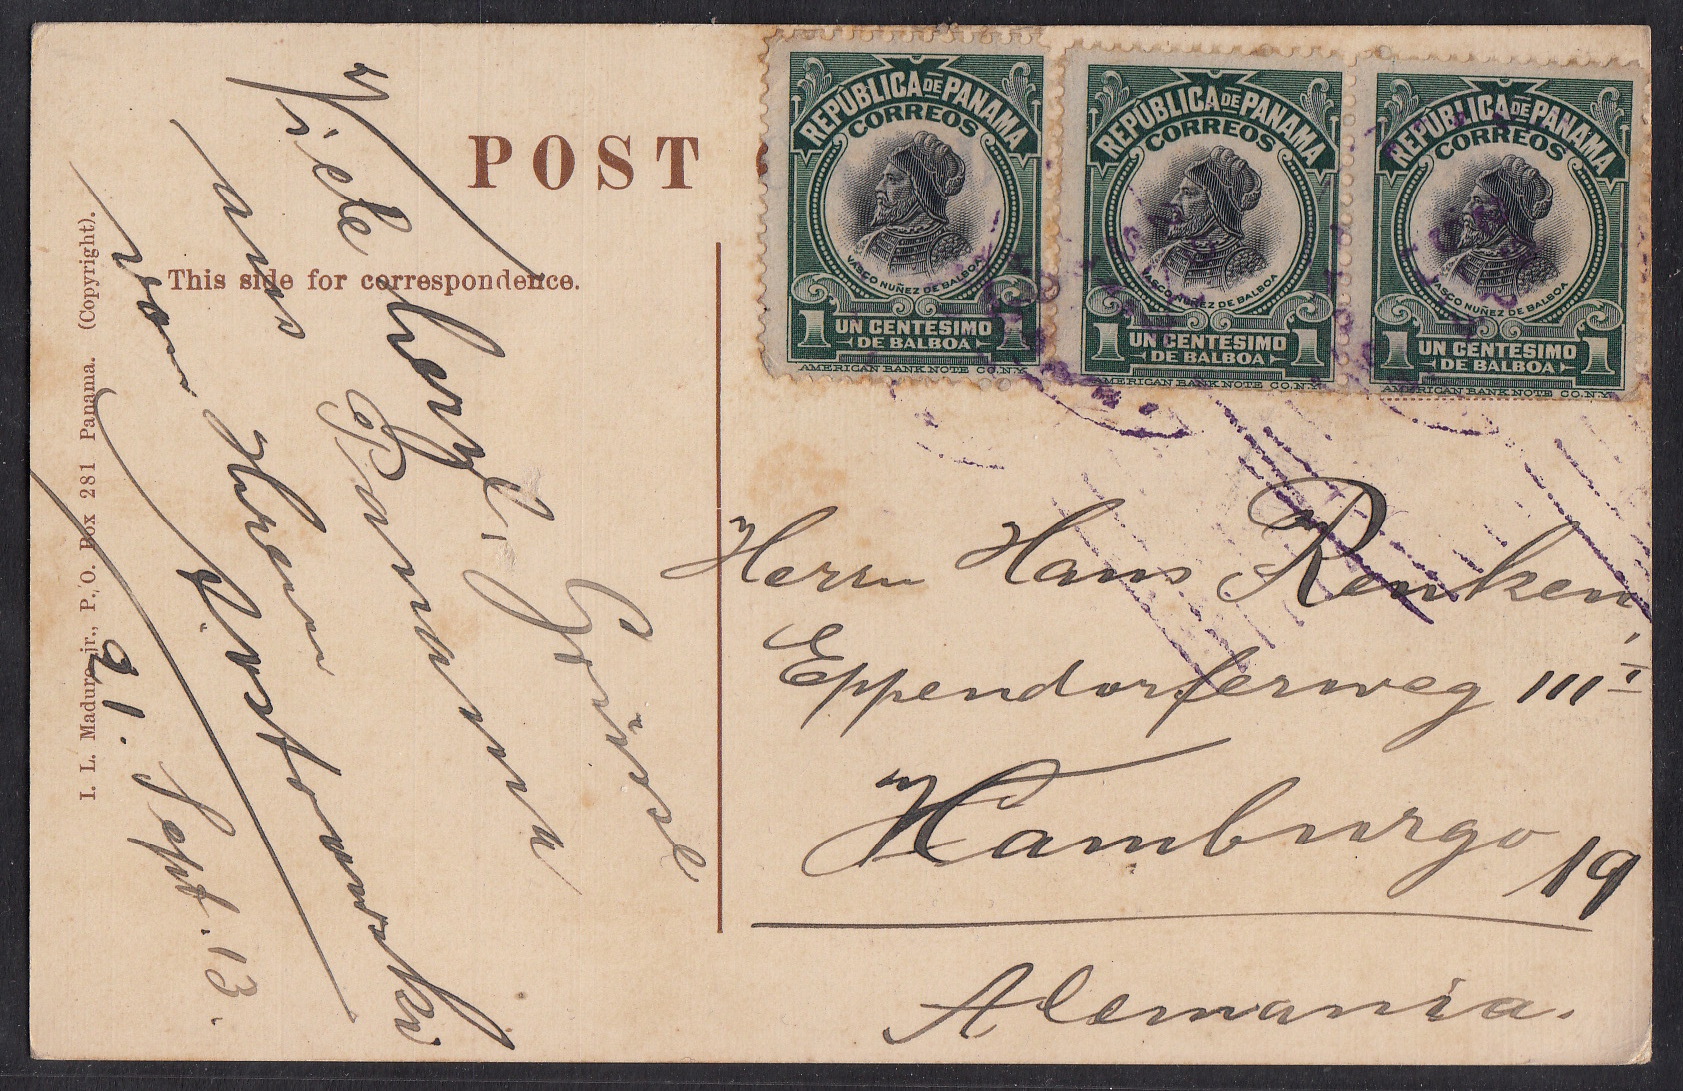 POST
This side for correspondence.
I. L. Maduro jr., P. O. Box 281 Panama. (Copyright).
Viele herzl. Grüsse
aus Panama
von Ihrem
21. Sept. 13.
REPUBLICA DE PANAMA
CORREOS
VASCO NUÑEZ DE BALBOA
1 UN CENTESIMO 1
DE BALBOA
AMERICAN BANK NOTE CO. N.Y.
REPUBLICA DE PANAMA
CORREOS
VASCO NUÑEZ DE BALBOA
1 UN CENTESIMO 1
DE BALBOA
AMERICAN BANK NOTE CO. N.Y.
REPUBLICA DE PANAMA
CORREOS
VASCO NUÑEZ DE BALBOA
1 UN CENTESIMO 1
DE BALBOA
AMERICAN BANK NOTE CO. N.Y.
Herrn Hans Renken
Eppendorferweg 111 I
Hamburgo 19
Alemania.